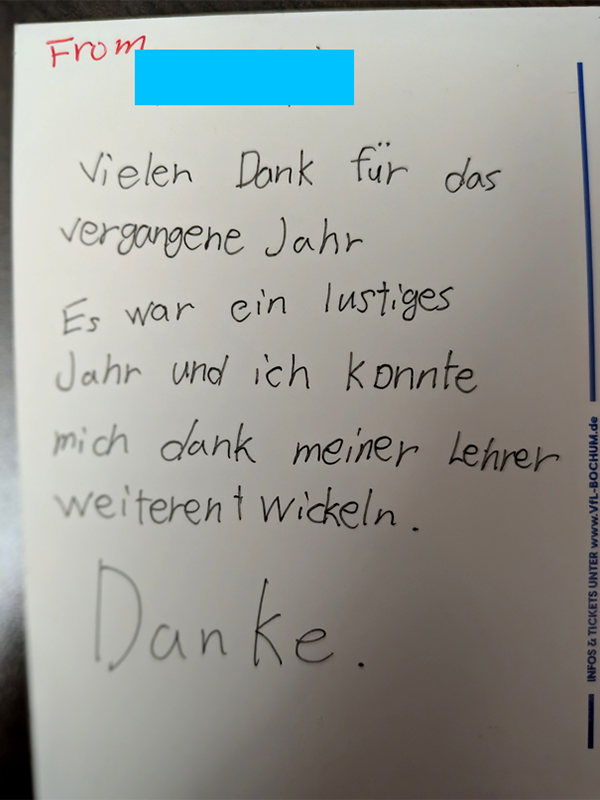 From
Vielen Dank für das
vergangene Jahr
Es war ein lustiges
Jahr und ich konnte
mich dank meiner Lehrer
weiterentwickeln.
Danke.
INFOS & TICKETS UNTER www.VfL-BOCHUM.de